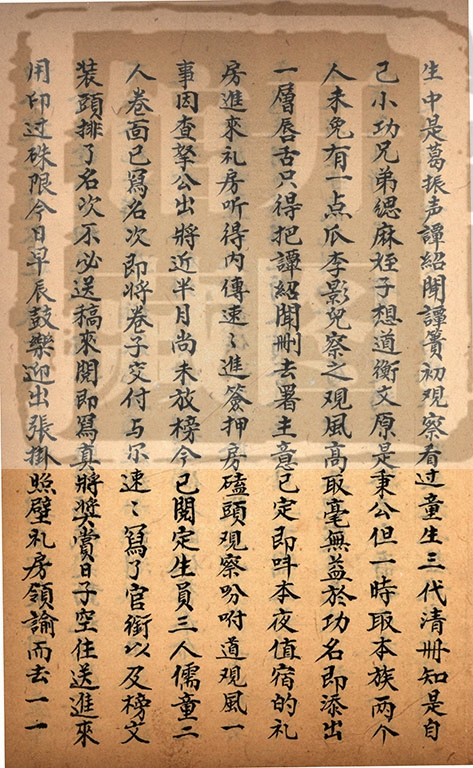 生中是葛振声譚紹聞譚簣初观察看过童生三代清冊知是自
己小功兄弟緦麻姪子想道衡文原是秉公但一時取本族两个
人未免有一点瓜李影兒察之观風高取毫無益於功名即添出
一層唇舌只得把譚紹聞刪去署主意已定即呌本夜值宿的礼
房進來礼房听得内傳速〻進簽押房磕頭观察吩咐道观風一
事因查拏公出將近半月尚未放榜今已閱定生員三人儒童二
人卷面已寫名次即將卷子交付与尔速〻寫了官銜以及榜文
装頭排了名次不必送稿來閱即寫真將奖賞日子空住送進來
用印过硃限今日早辰鼓樂迎出張掛照壁礼房領諭而去一一